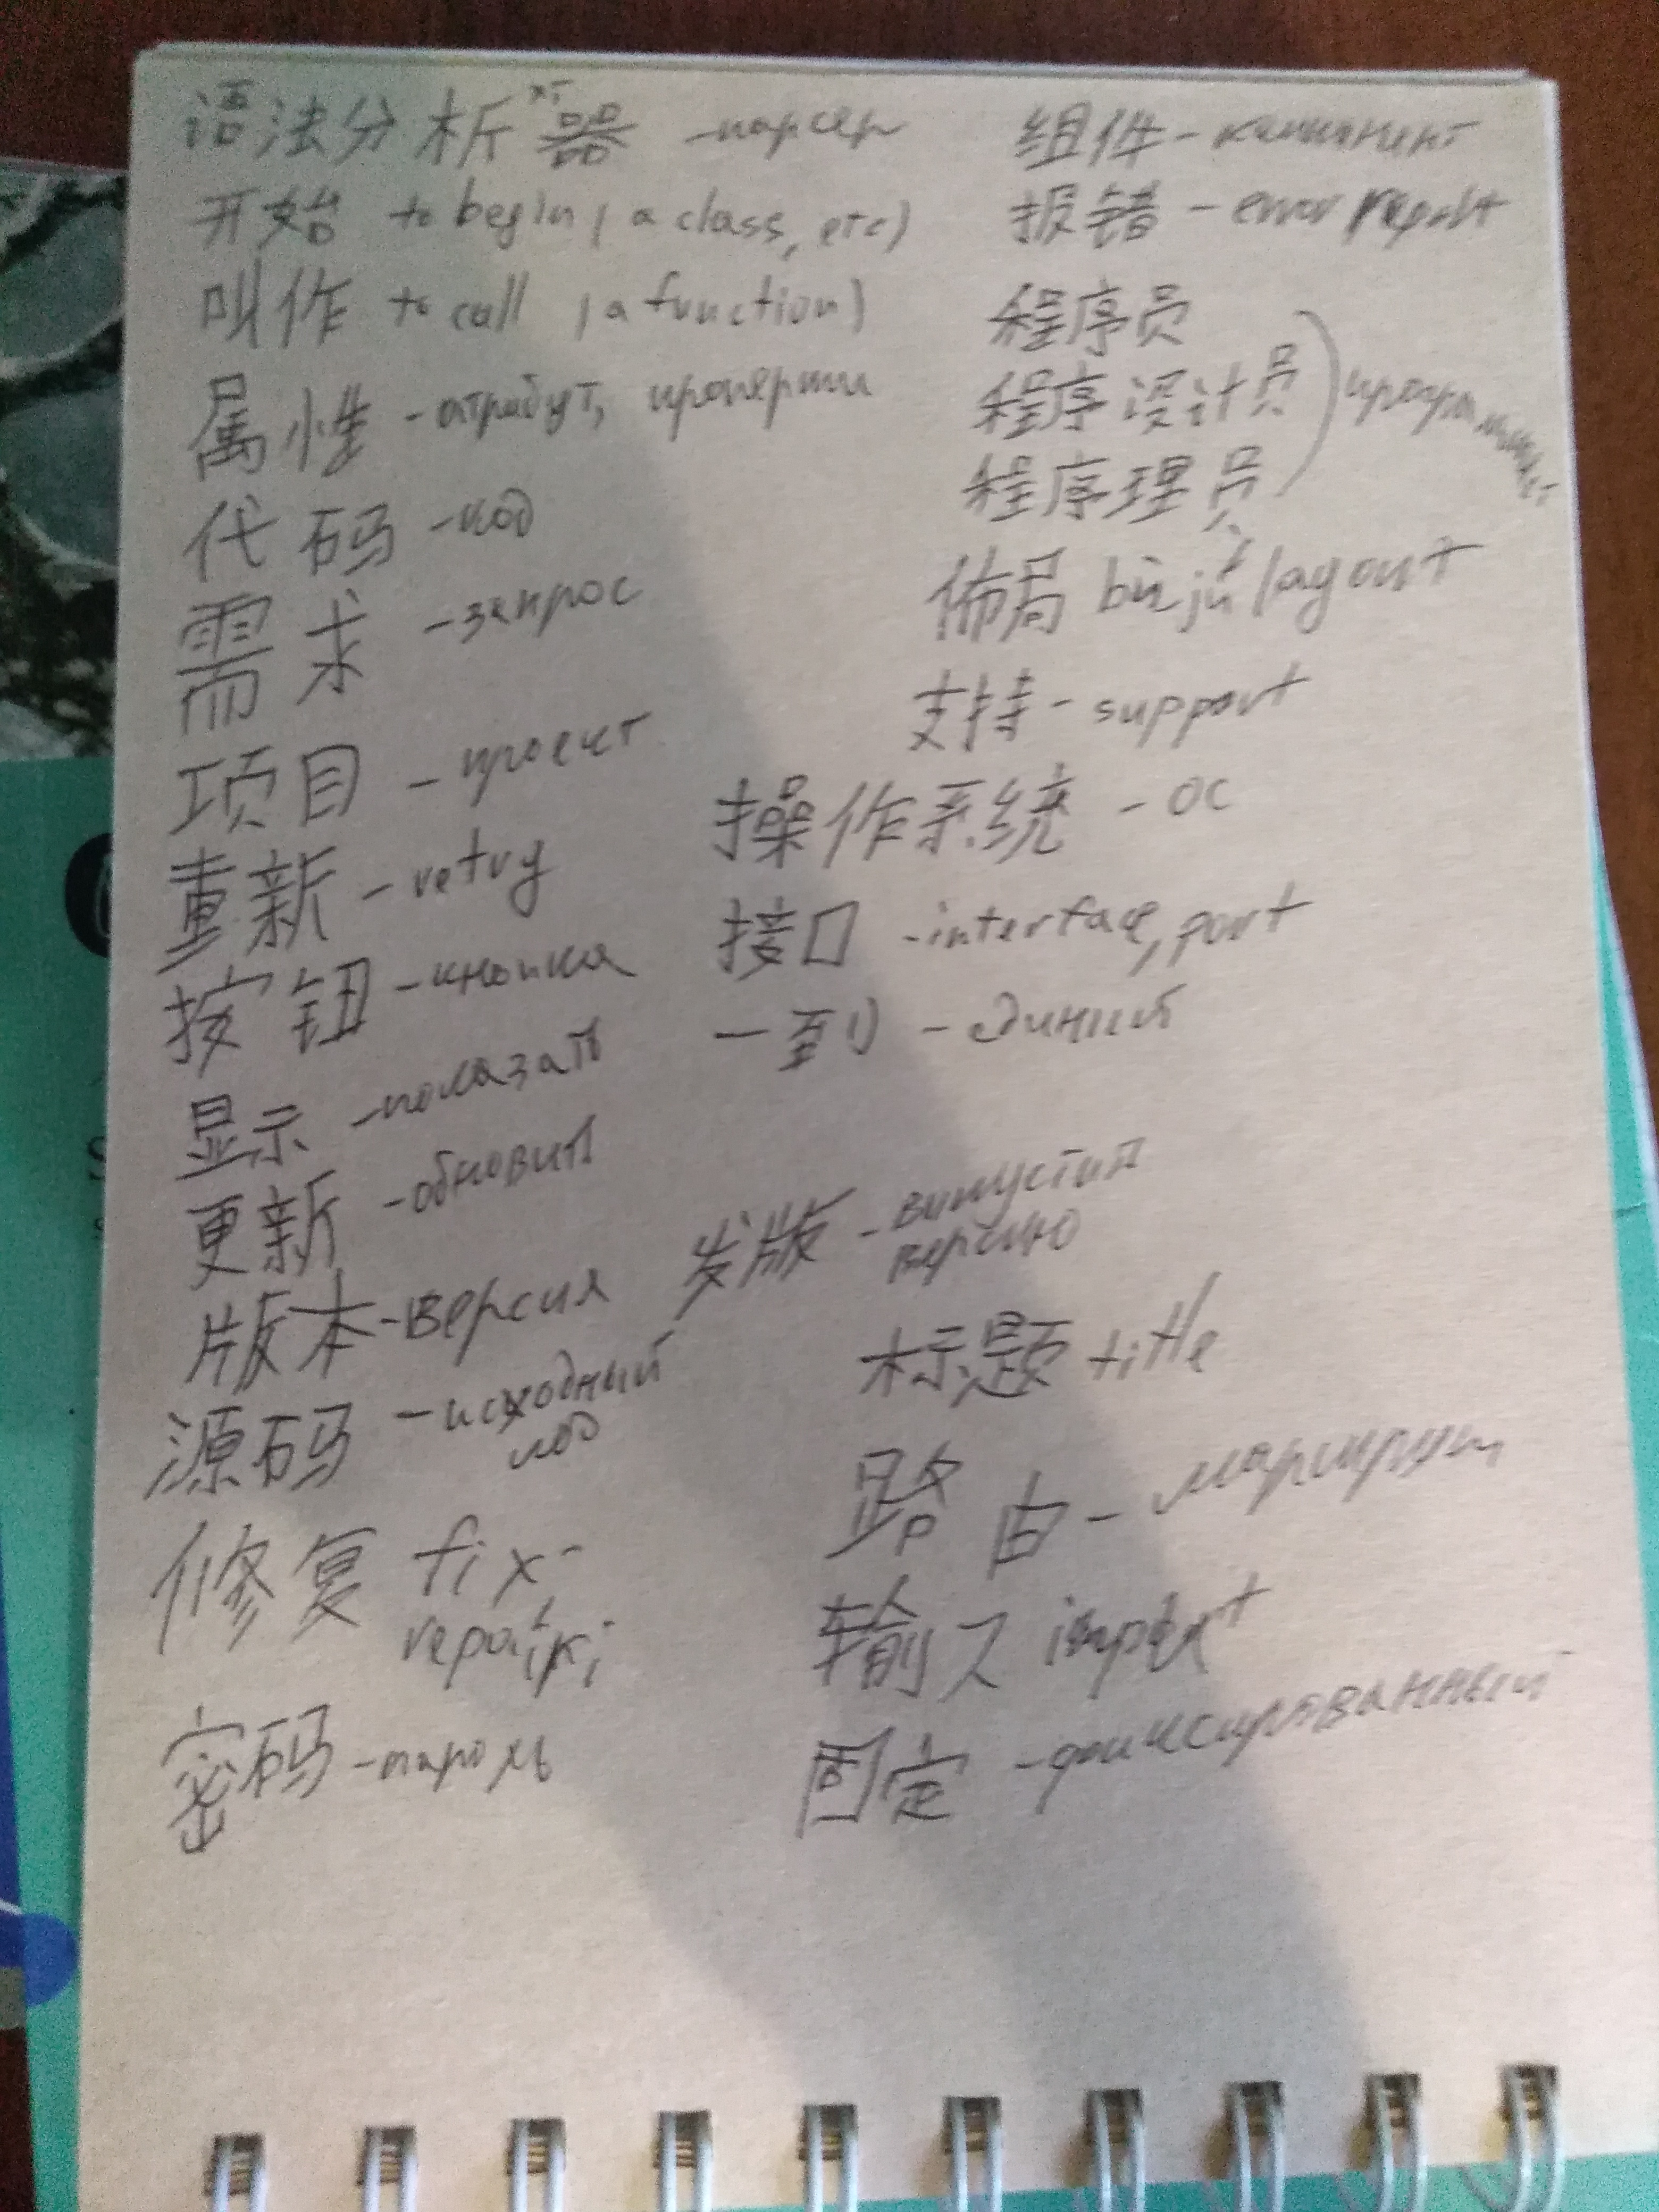 语法分析器 - парсер
开始 to begin (a class, etc)
叫作 to call (a function)
属性 - атрибут, проперти
代码 - код
需求 - запрос
项目 - проект
重新 - retry
按钮 - кнопка
显示 - показать
更新 - обновить
版本 - версия
源码 - исходный
код
修复 fix -
密码 - пароль
组件 - компонент
报错 - error report
程序员
程序设计员
程序理员
佈局 bùjú layout
支持 - support
操作系统 - ОС
接口 - interface, port
一到 - единый
发版 - выпустить
версию
标题 title
路由 - маршрут
输入 input
固定 - фиксированный